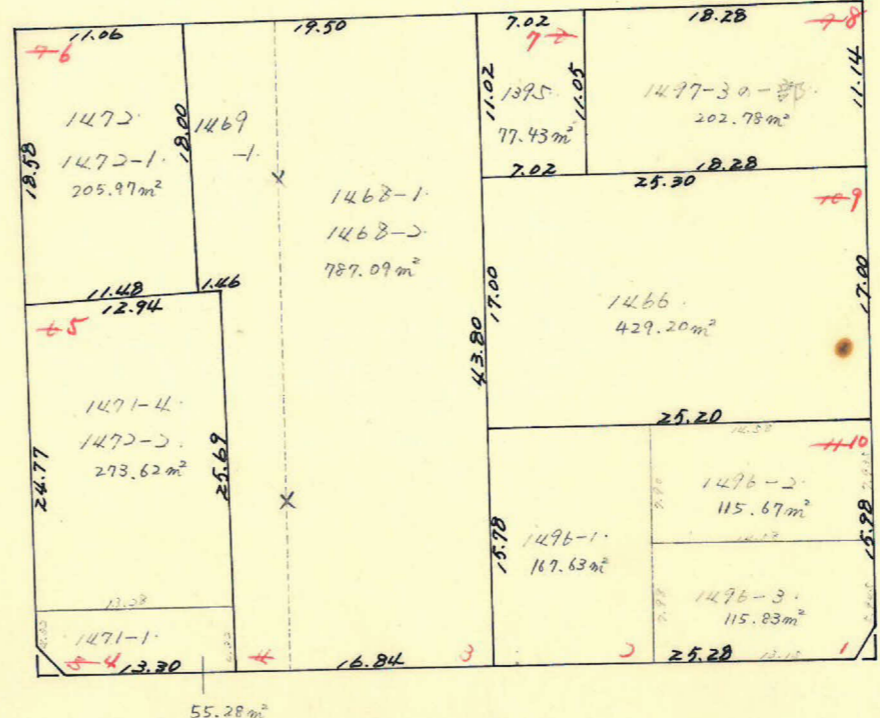 11.06
19.50
7.02
18.28
7 6
7 2
9 8
1472
1472-1
205.97m²
18.58
18.00
1469
-1
11.02
1395
77.43m²
11.05
1497-3の一部
202.78m²
11.14
7.02
18.28
25.30
1468-1
1468-2
787.09m²
10 9
11.48
1.46
12.94
6 5
17.00
1466
429.20m²
17.00
43.80
1471-4
1472-2
273.62m²
24.77
25.69
25.20
11 10
1496-2
115.67m²
15.78
1496-1
167.63m²
15.98
1496-3
115.83m²
1471-1
5 4
13.30
4
16.84
3
2
25.28
1
55.28m²